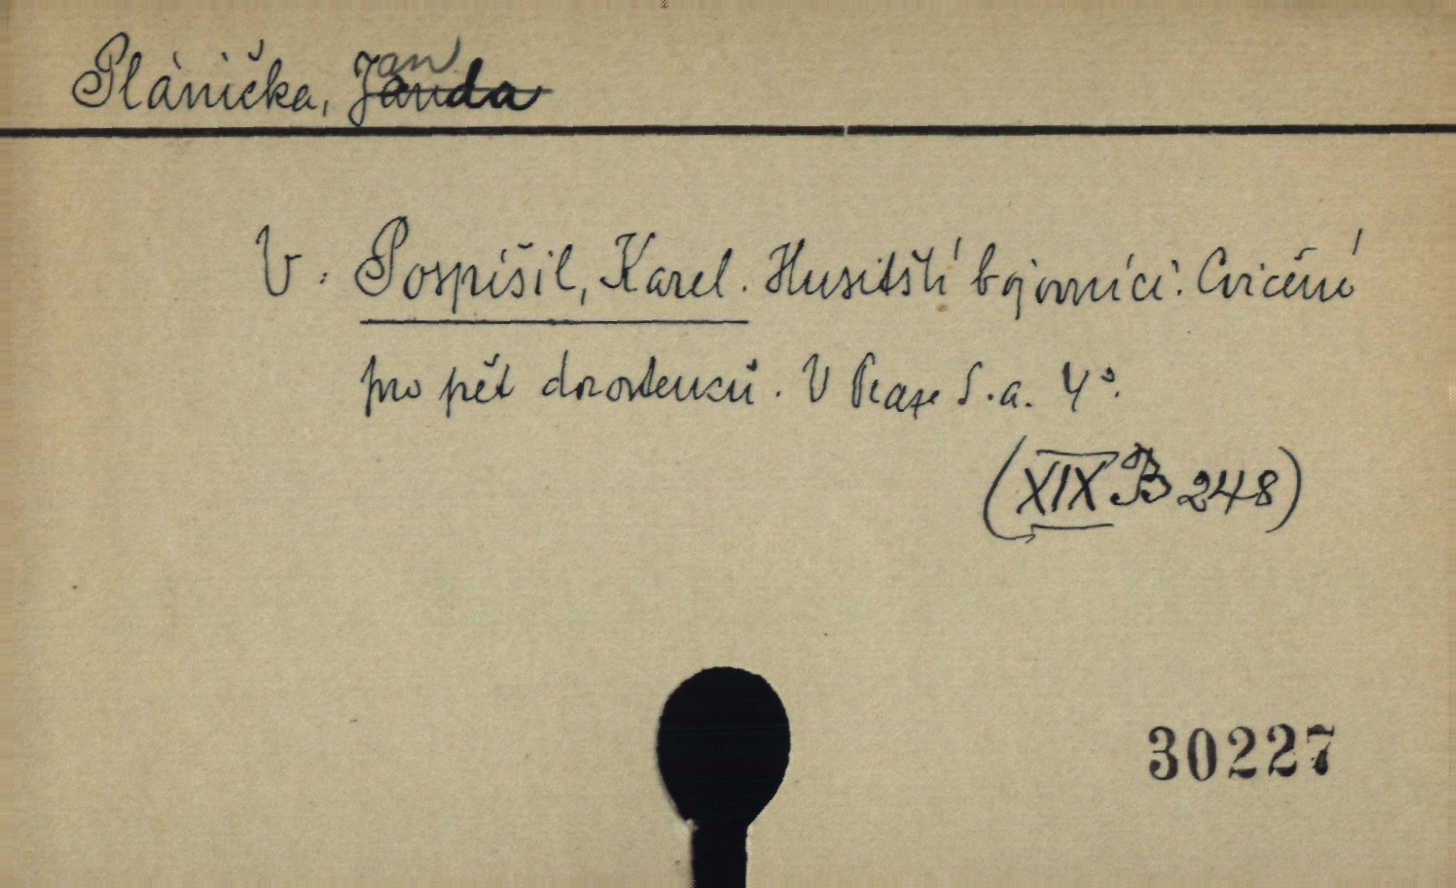 Plánička, Jan Janda
V: Pospíšil, Karel. Husitští bojovníci. Cvičení
pro pět dorostenců. V Praze S.a. 4°.
(XIX B 248)
30227